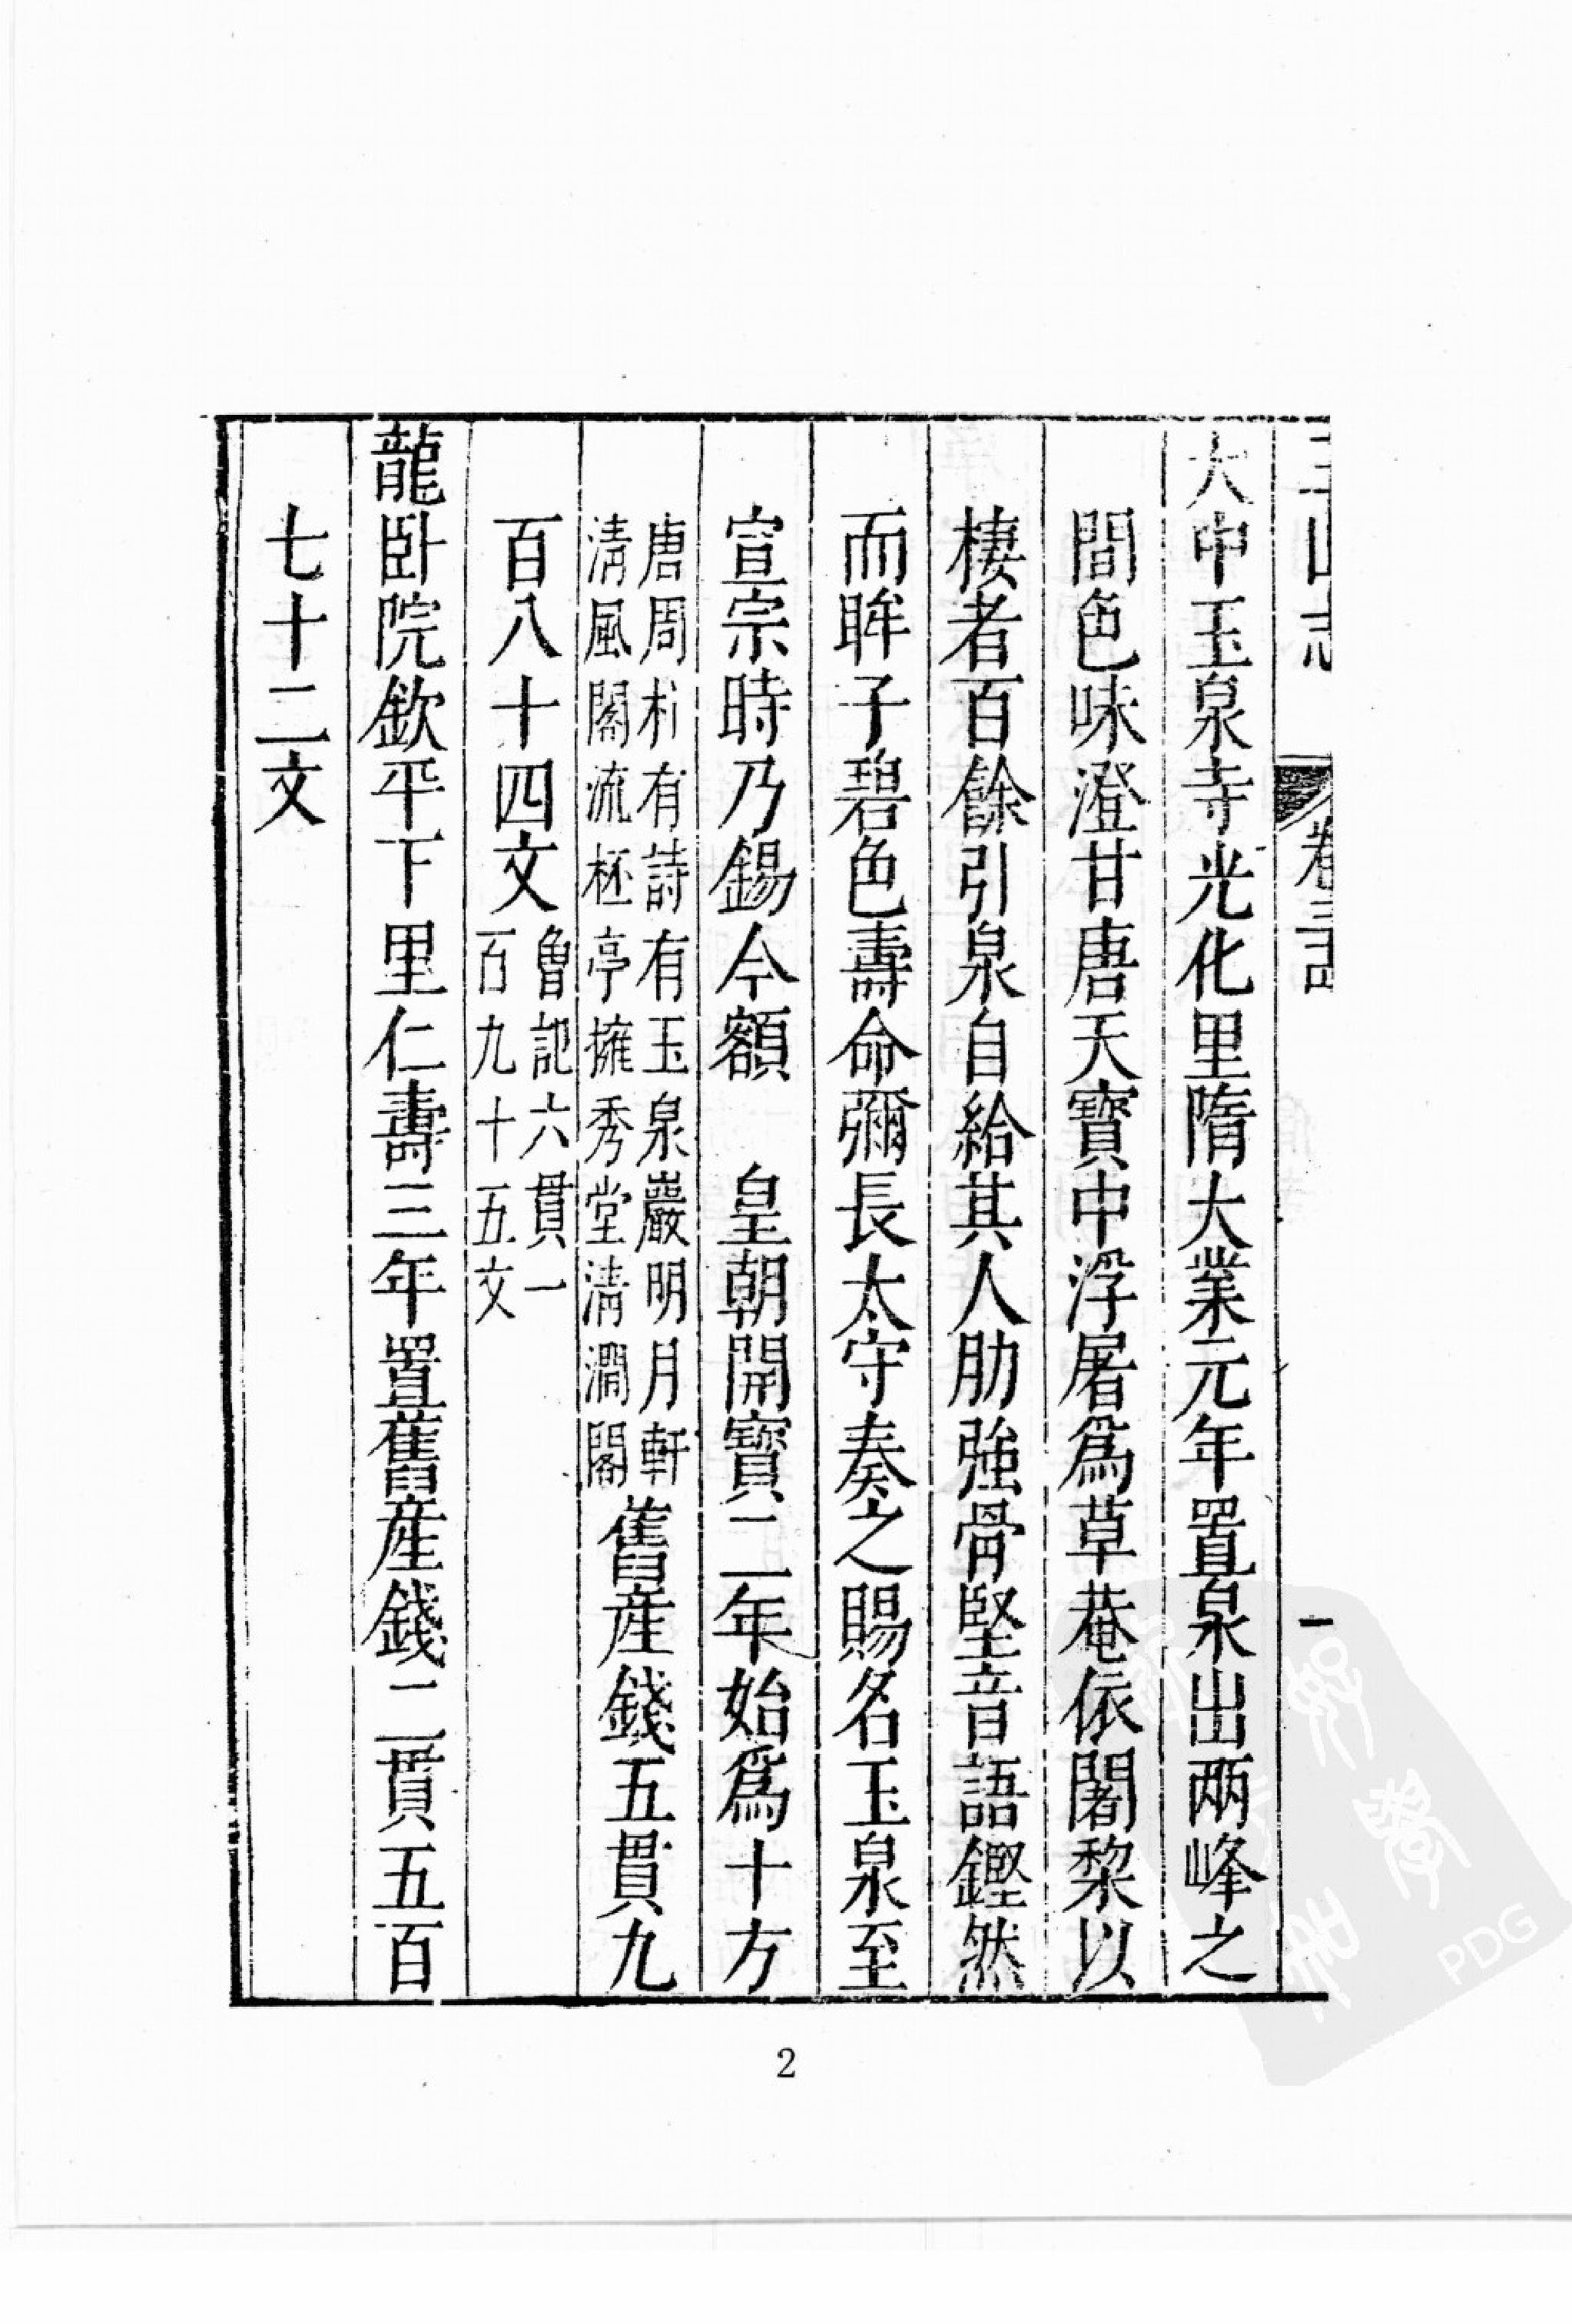 大中玉泉寺光化里隋大業元年置泉出兩峰之
間色味澄甘唐天寶中浮屠爲草菴依闍黎以
棲者百餘引泉自給其人肋強骨堅音語鏗然
而眸子碧色壽命彌長太守奏之賜名玉泉至
宣宗時乃錫今額　皇朝開寶二年始爲十方
唐周朴有詩有玉泉巖明月軒
清風閣流杯亭擁秀堂清澗閣
舊產錢五貫九
百八十四文
魯記六貫一
百九十五文
龍卧院欽平下里仁壽三年置舊產錢二貫五百
七十二文
2
PDG